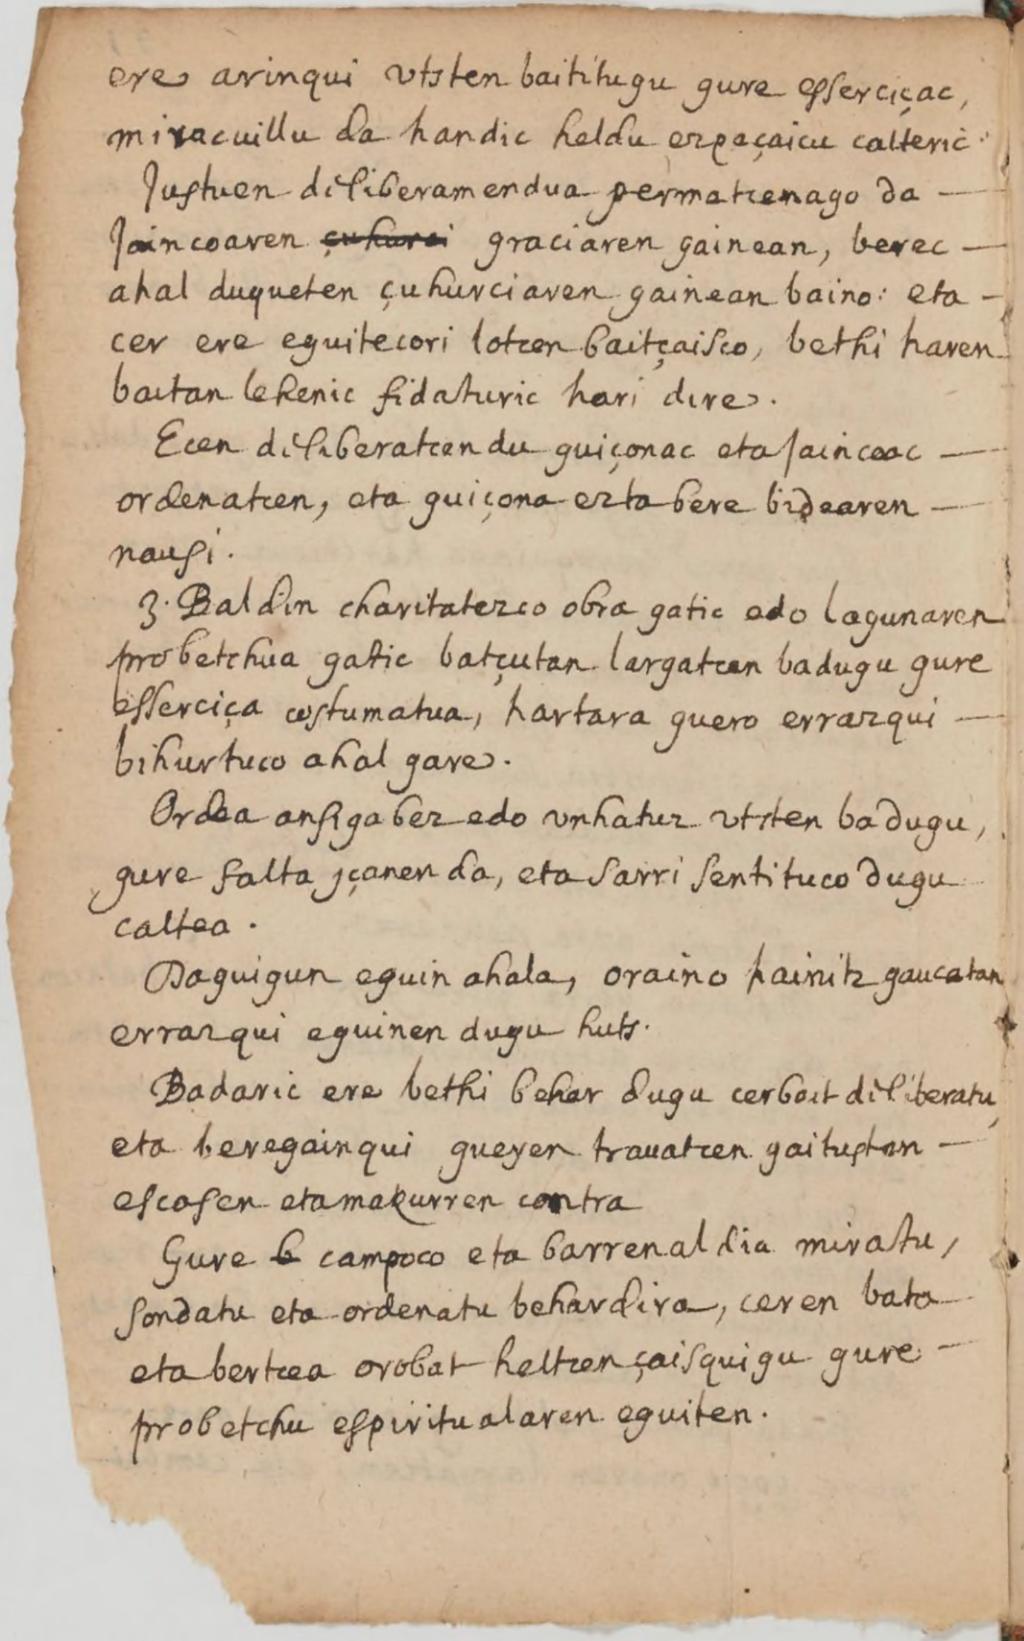 ere arinqui vtsten baititugu gure esserciçac,
miracuillu da handic heldu ezpaçaicu calteric.
Justuen deliberamendua permatcenago da —
Jaincoaren çuhurci graciaren gainean, berec —
ahal duqueten çuhurciaren gainean baino: eta —
cer ere eguitecori lotcen baitçaisco, bethi haren
baitan lehenic fidaturic hari dire.
Ecen deliberatcen du guiçonac eta Jaincoac —
ordenatcen, eta guiçona ezta bere bidearen —
nausi.
3. Baldin charitatezco obra gatic edo lagunaren
probetchua gatic batçutan largatcen badugu gure
esserciça costumatua, hartara guero errazqui —
bihurtuco ahal gare.
Ordea ansigabez edo vnhatuz vtsten badugu,
gure falta jçanen da, eta sarri sentituco dugu
caltea.
Daguigun eguin ahala, oraino hainitz gaucetan
errazqui eguinen dugu huts.
Badaric ere bethi behar dugu cerbait deliberatu,
eta beregainqui gueyen trauatcen gaitusten —
escasen eta makurren contra
Gure b campoco eta barrenaldia miratu,
sondatu eta ordenatu behar dira, ceren bata
eta bertcea orobat heltcen çaisquigu gure —
probetchu espiritualaren eguiten.